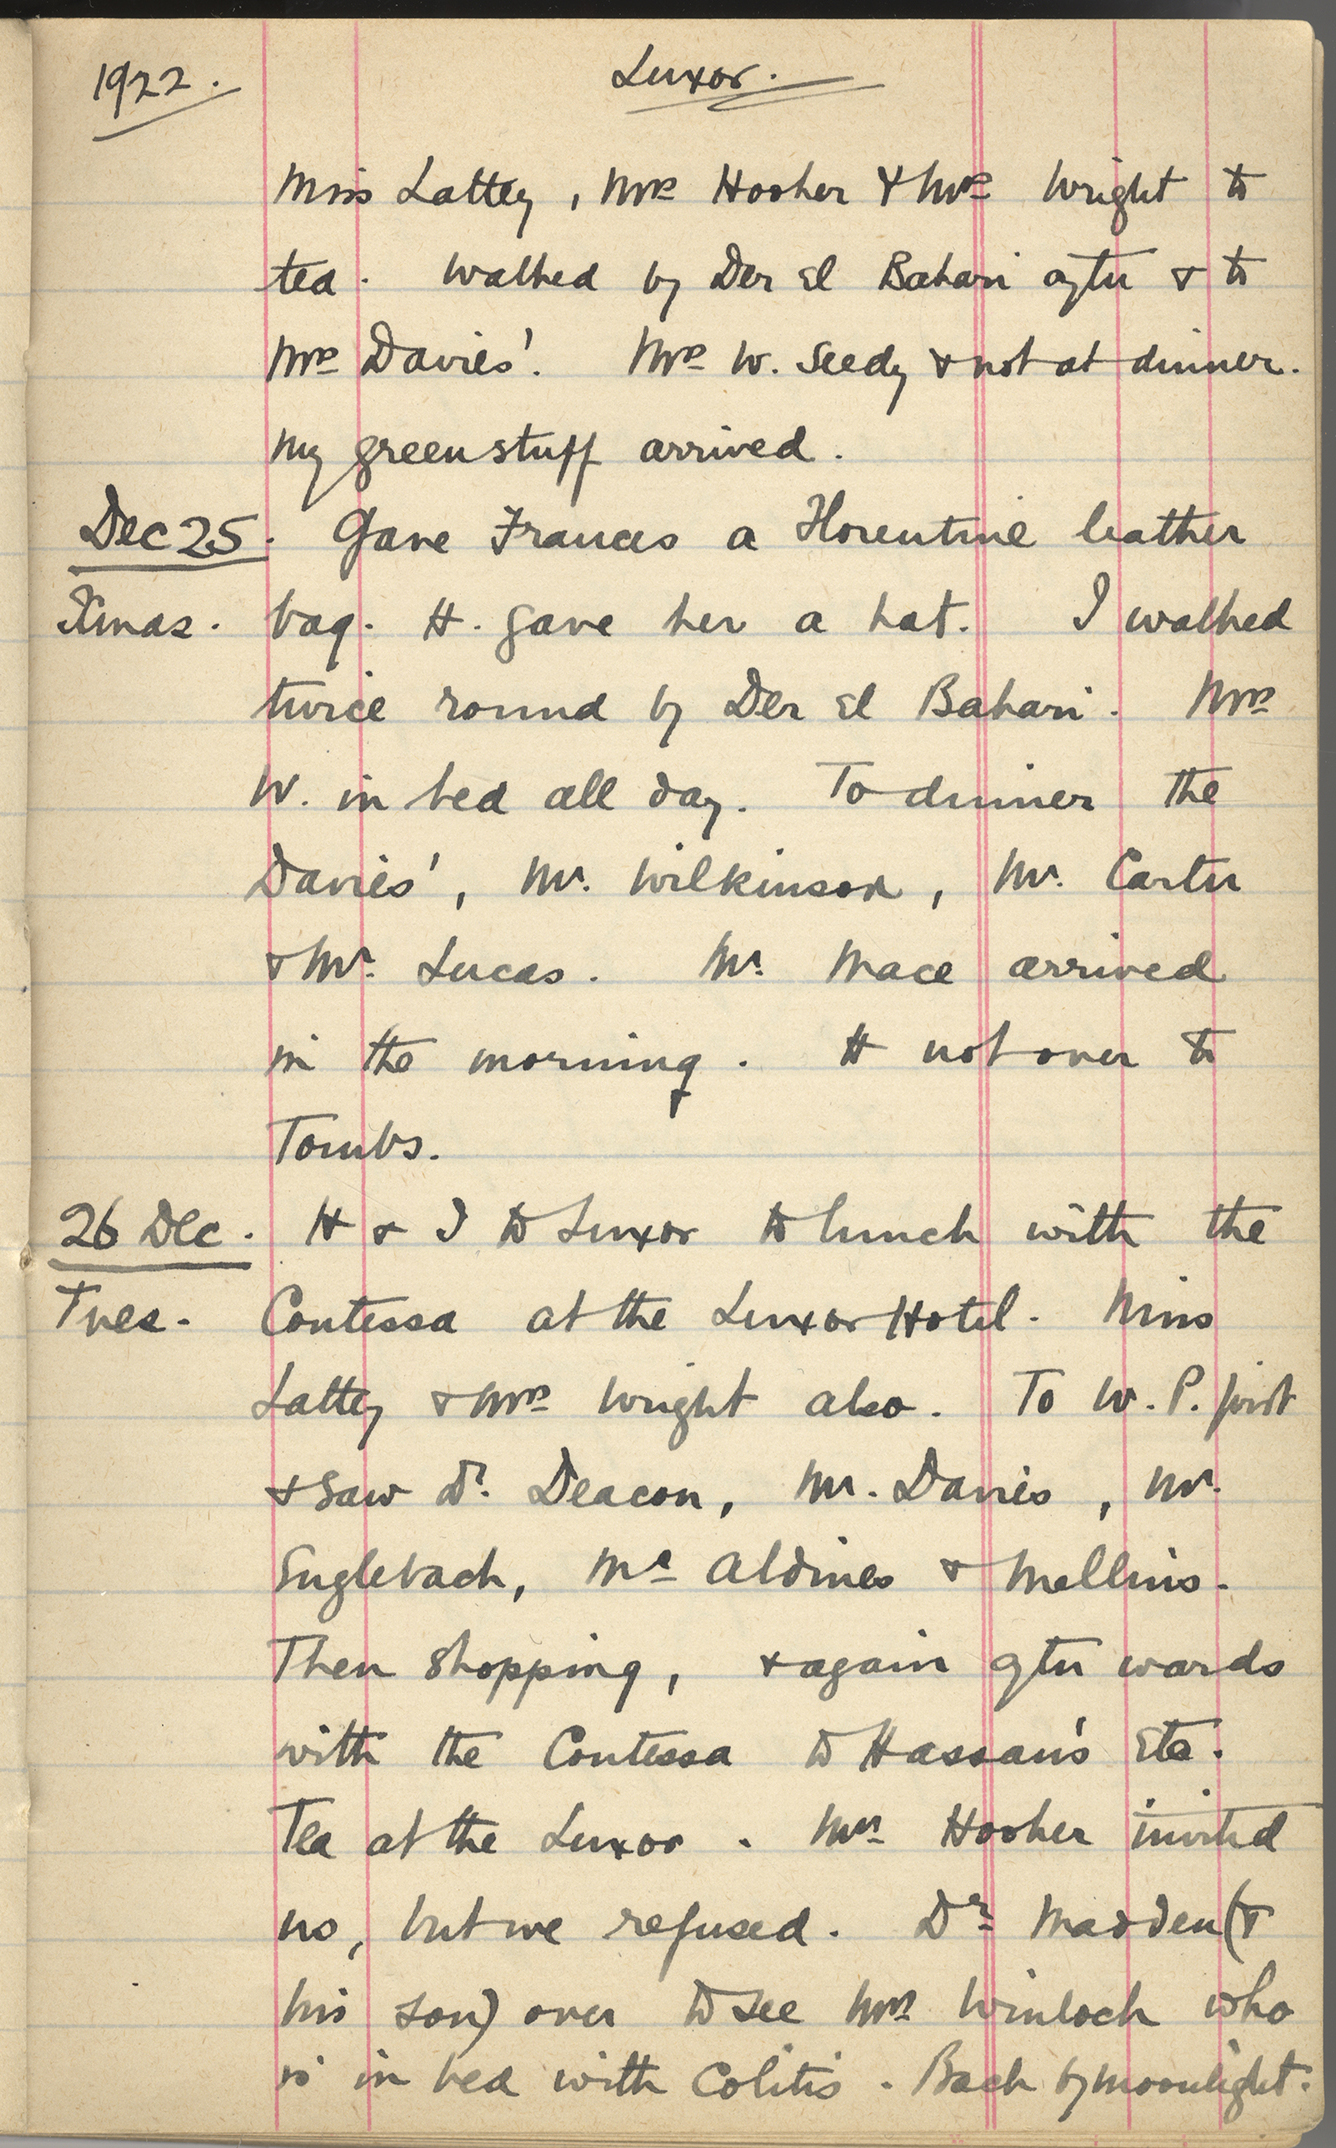 1922. Luxor.
Miss Lattey, Mrs Hooker & Mrs Wright to
tea. Walked by Der el Bahari after & to
Mrs Davies'. Mrs W. seedy & not at dinner.
My green stuff arrived.
Dec 25. Gave Frances a Florentine leather
Xmas. bag. H. gave her a hat. I walked
twice round by Der el Bahari. Mrs
W. in bed all day. To dinner the
Davies', Mr. Wilkinson, Mr. Carter
& Mr. Lucas. Mr. Mace arrived
in the morning. H not over to
Tombs.
26 Dec. H & I to Luxor to lunch with the
Tues. Contessa at the Luxor Hotel. Miss
Lattey & Mrs Wright also. To W. P. first
& saw Dr. Deacon, Mr. Davies, Mr.
Englebach, Mr Aldines & Mellinis.
Then shopping, & again afterwards
with the Contessa to Hassan's etc.
Tea at the Luxor. Mrs Hooker invited
us, but we refused. Dr Madden (&
his son) over to see Mrs Winlock who
is in bed with Colitis. Back by moonlight.